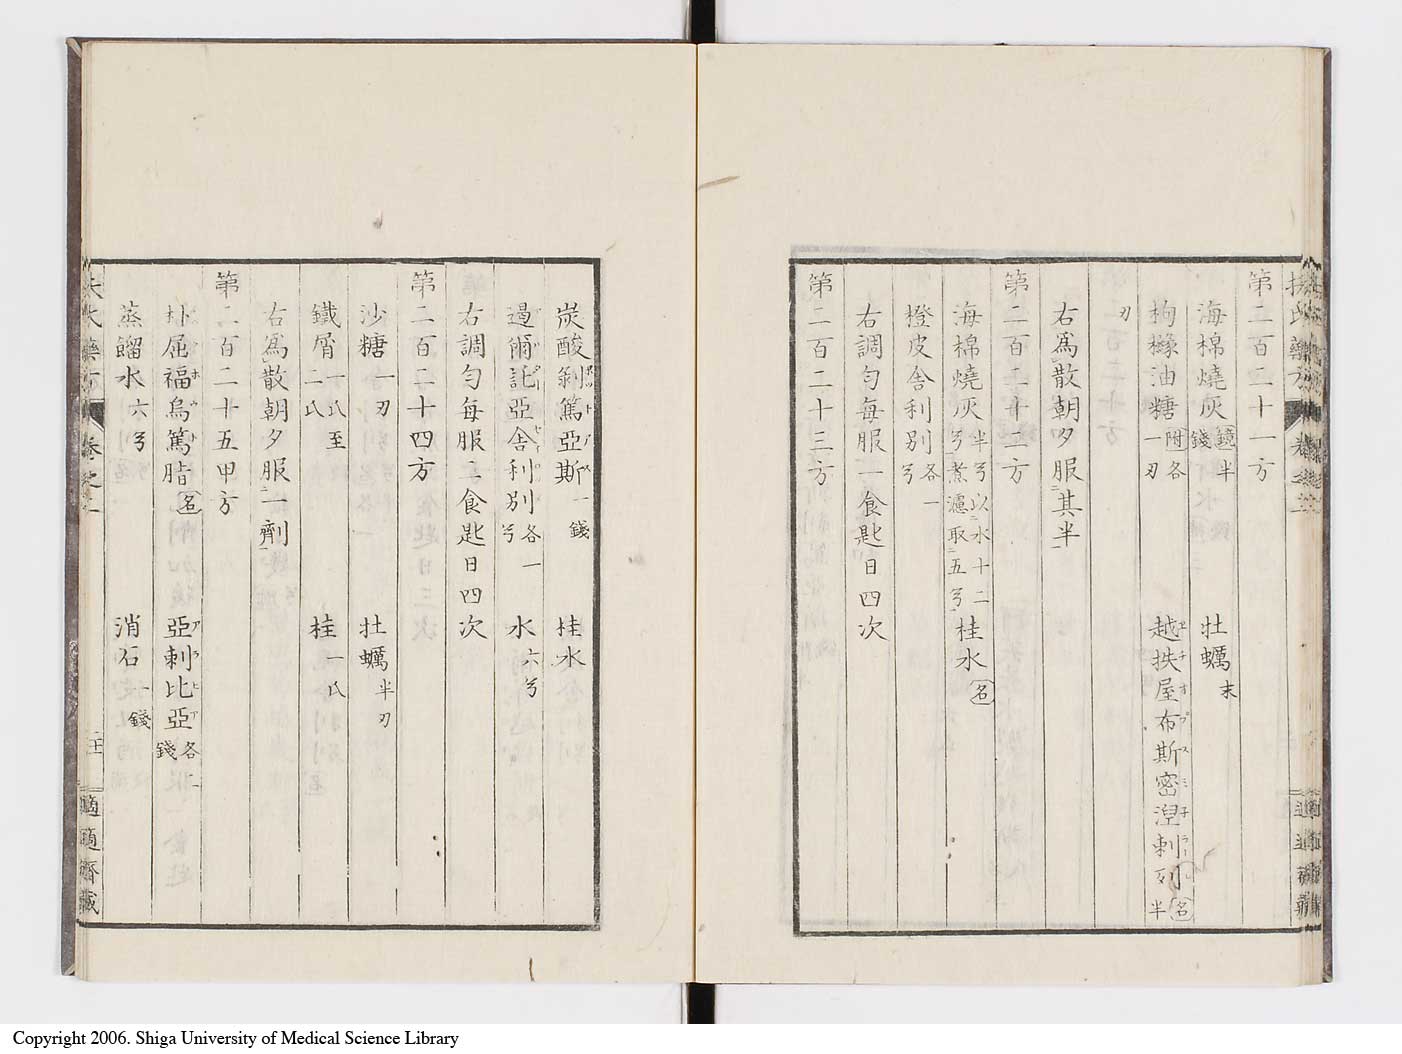 第二百二十一方
海棉燒灰 鏡半錢 牡蠣 末
枸櫞油糖 附各一刃 越抶屋布斯密涅刺列 名 半
刃
右爲散朝夕服其半
第二百二十二方
海棉燒灰 半兮以水十二兮煮濾取五兮 桂水 名
橙皮舎利別 各一兮
右調勻每服一食匙日四次
第二百二十三方
炭酸剝篤亞斯 一錢 桂水
過爾託亞舎利別 各一兮 水 六兮
右調勻每服二食匙日四次
第二百二十四方
沙糖 一刃 牡蠣 半刃
鐵屑 一氏至二氏 桂 一氏
右爲散朝夕服一劑
第二百二十五甲方
朴屈福烏篤脂 名 亞剌比亞 各一錢
蒸餾水 六兮 消石 一錢
適適齋藏
Copyright 2006. Shiga University of Medical Science Library